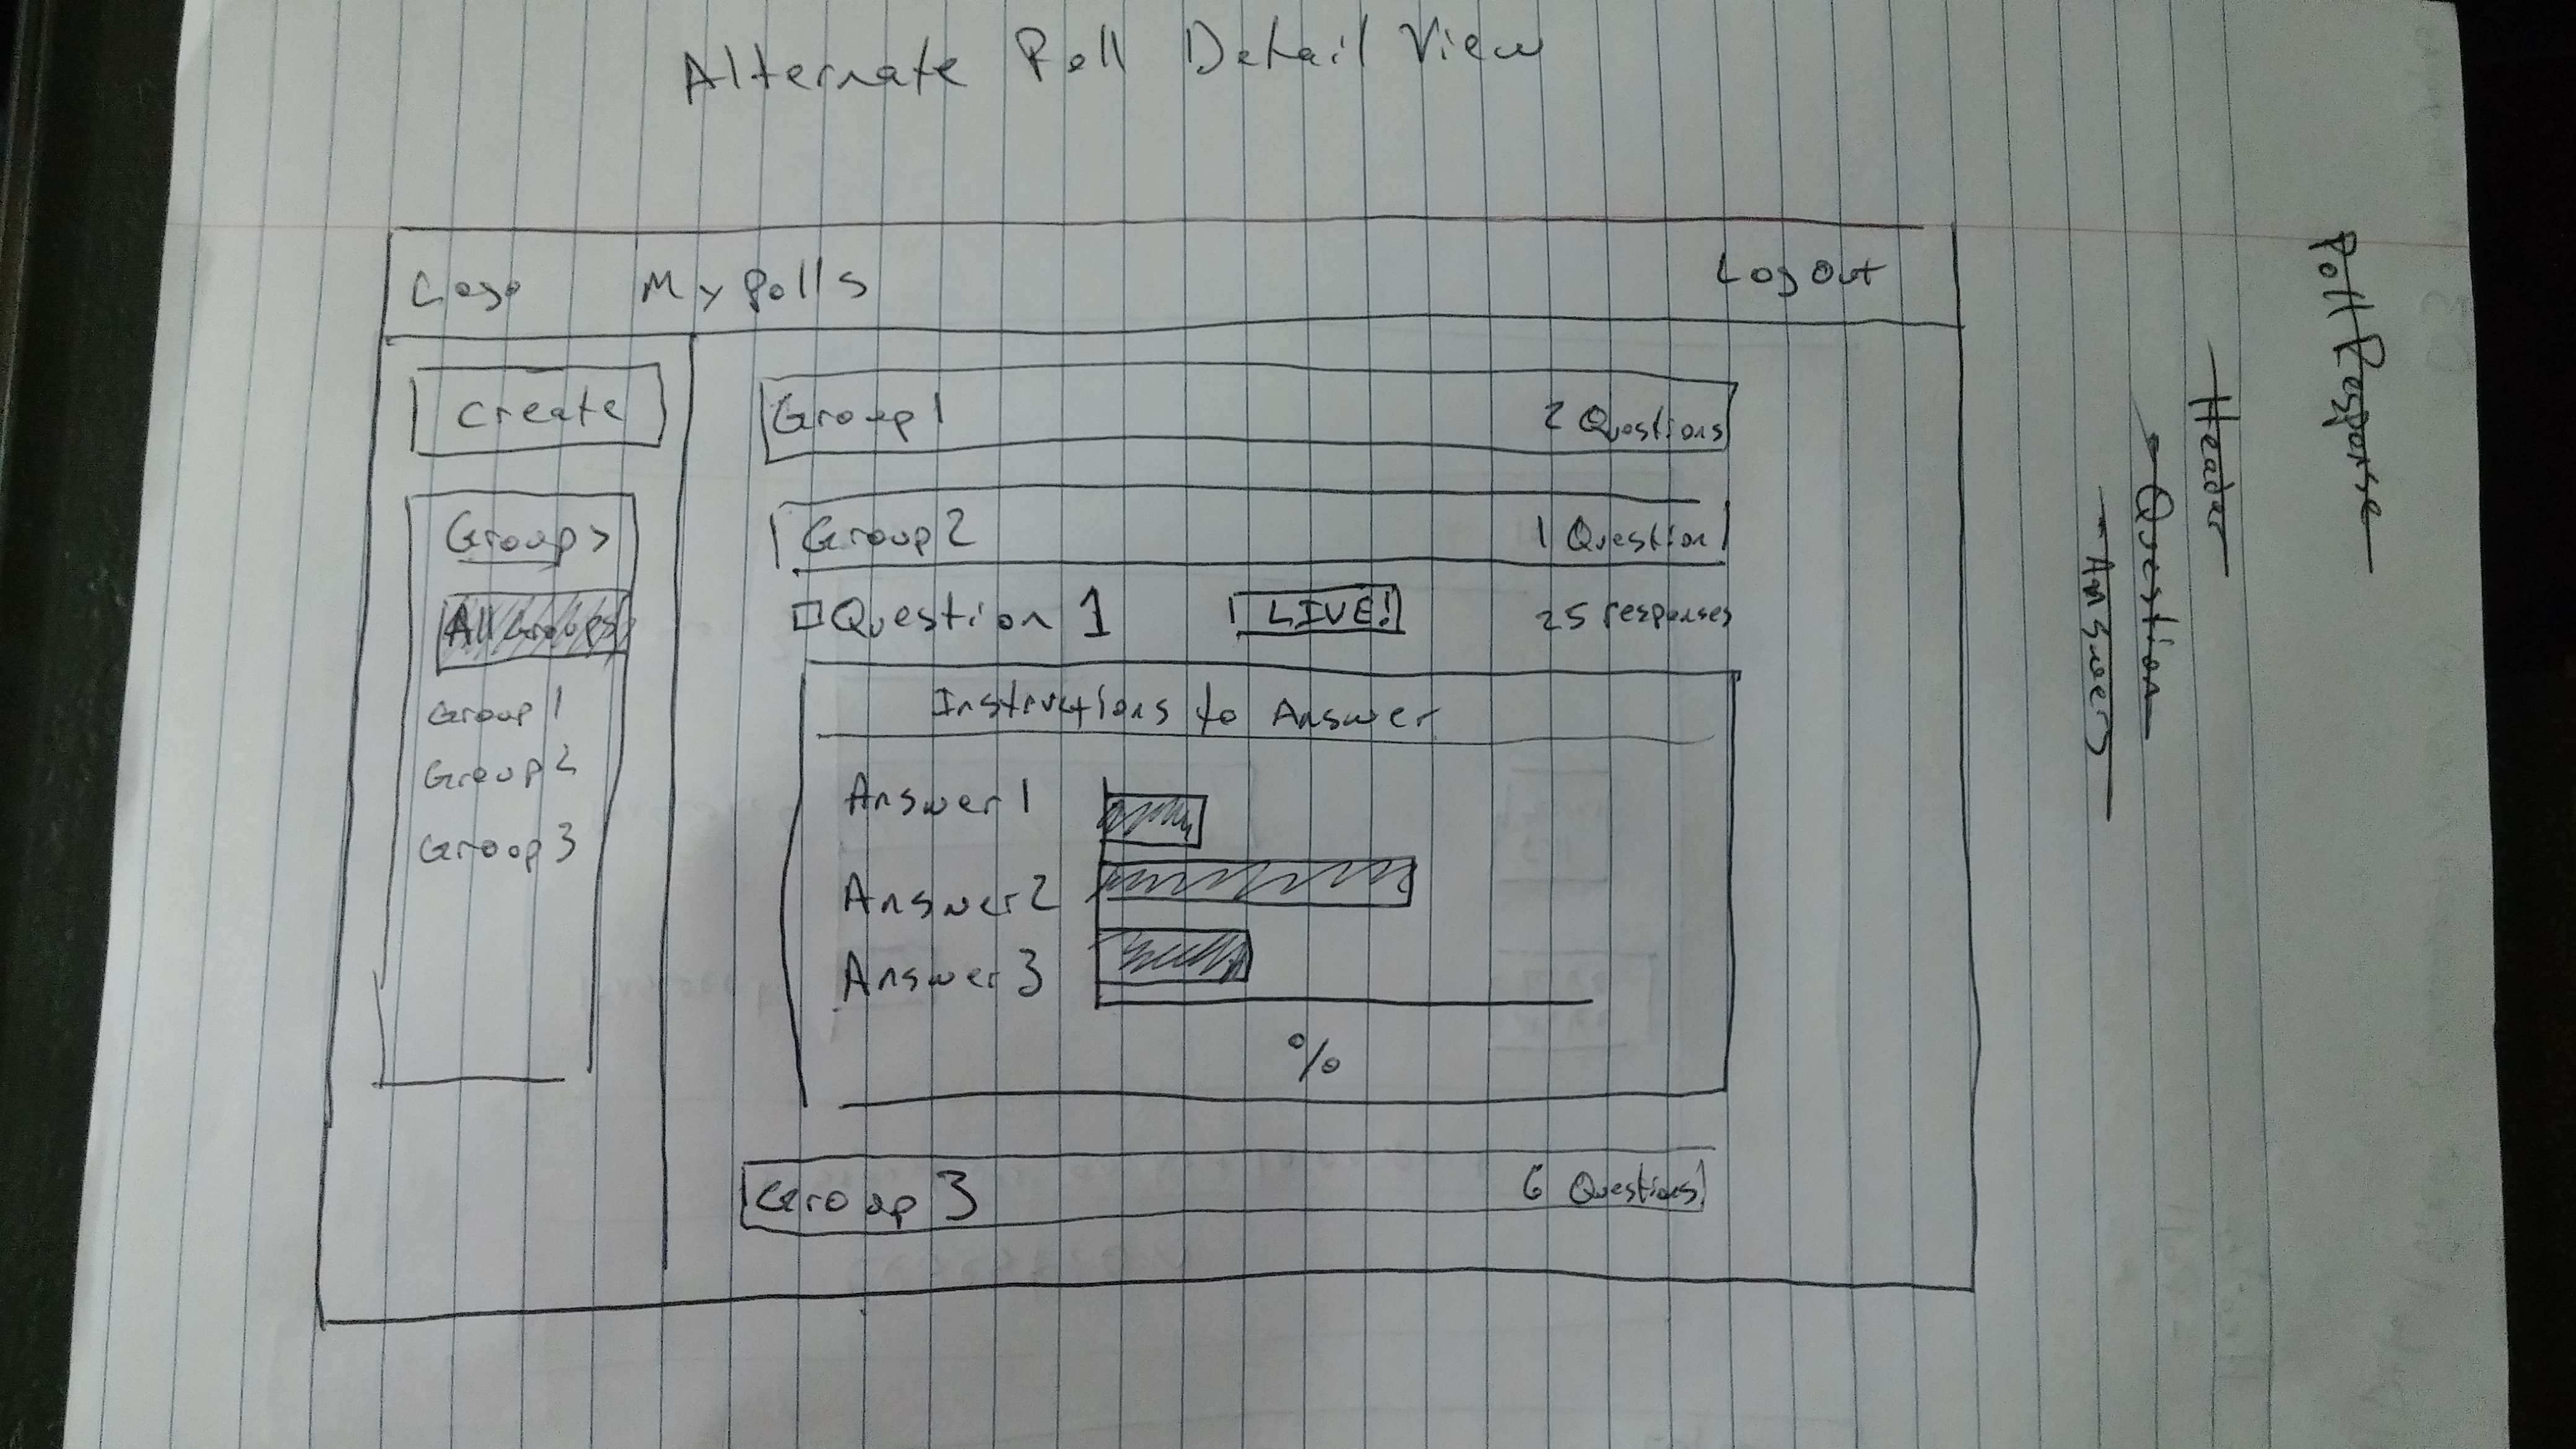 Alternate Poll Detail View
Logo My Polls Log Out
Create
Groups
All Groups
Group 1
Group 2
Group 3
Group 1 2 Questions
Group 2 1 Question
Question 1 LIVE! 25 responses
Instructions to Answer
Answer 1
Answer 2
Answer 3
%
Group 3 6 Questions
Poll Response
- Header
- Question
- Answers